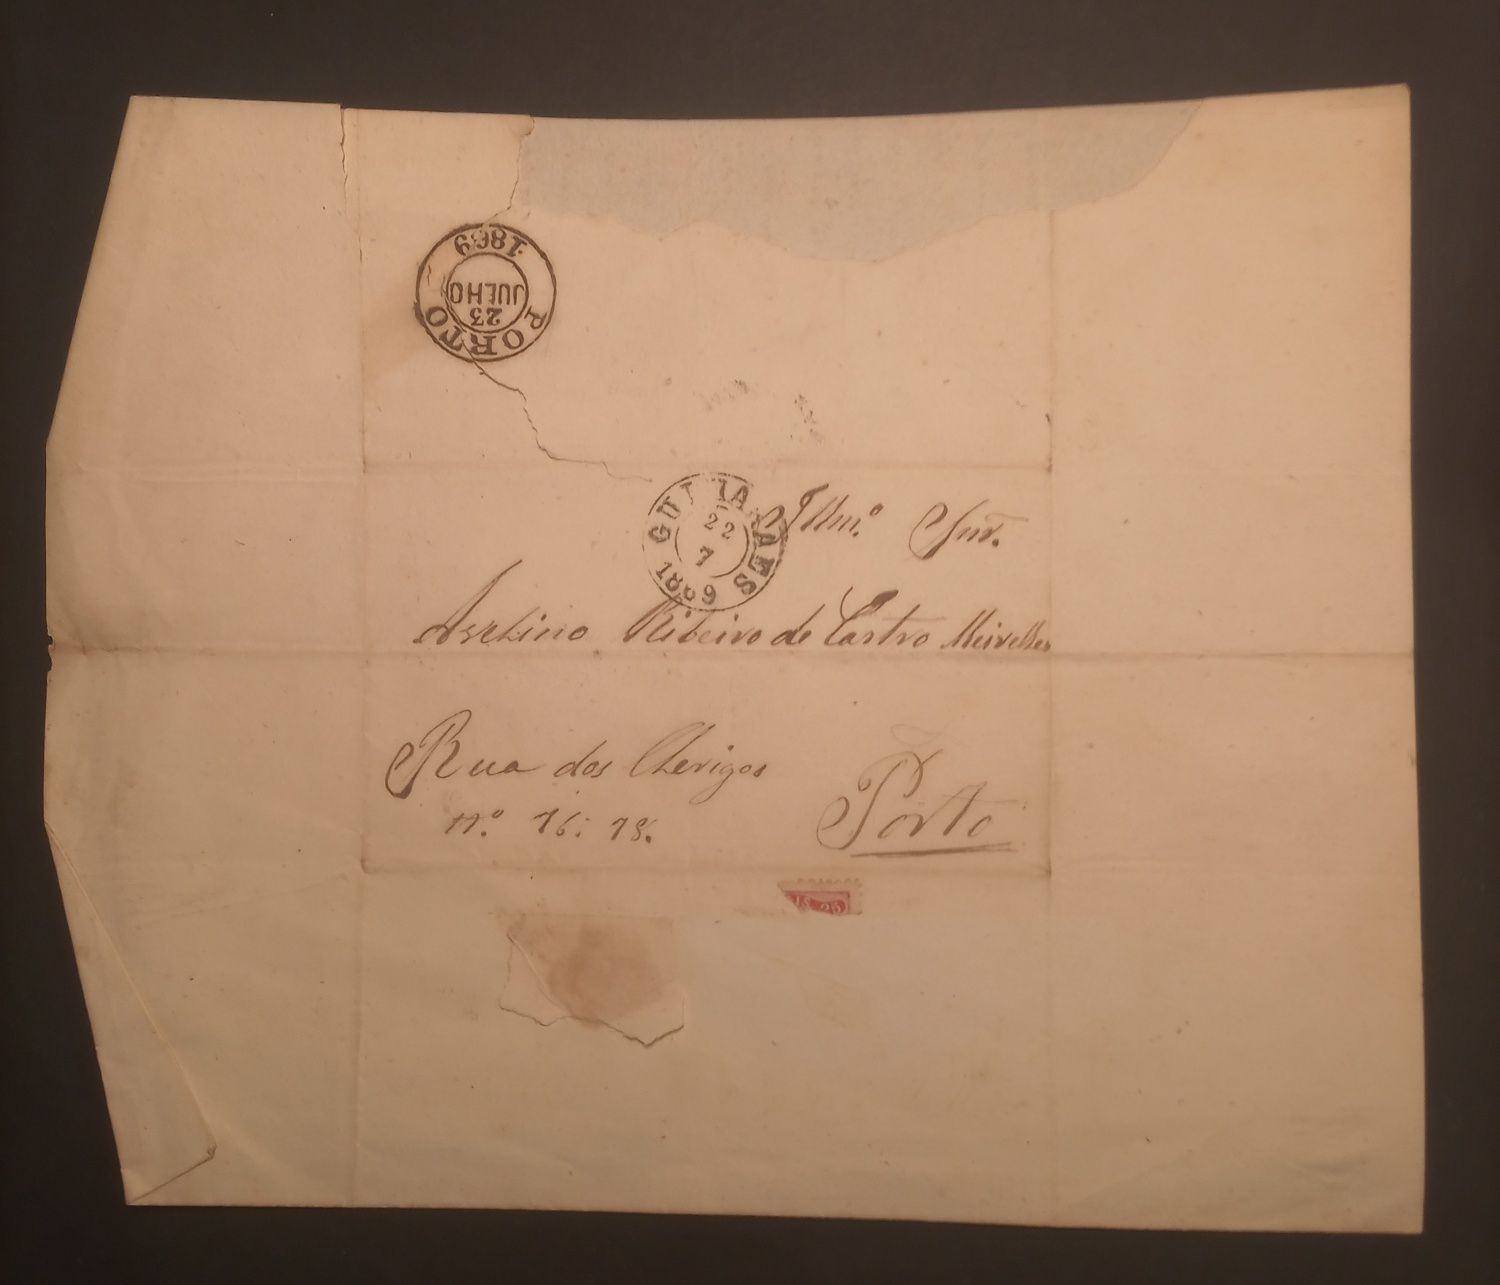 PORTO
23
JULHO
1869
GUIMARAES
22
7
1869
Illmº. Snr.
Ribeiro de Castro Meirelles
Rua dos Clerigos
nº. 76: 78.
Porto
25